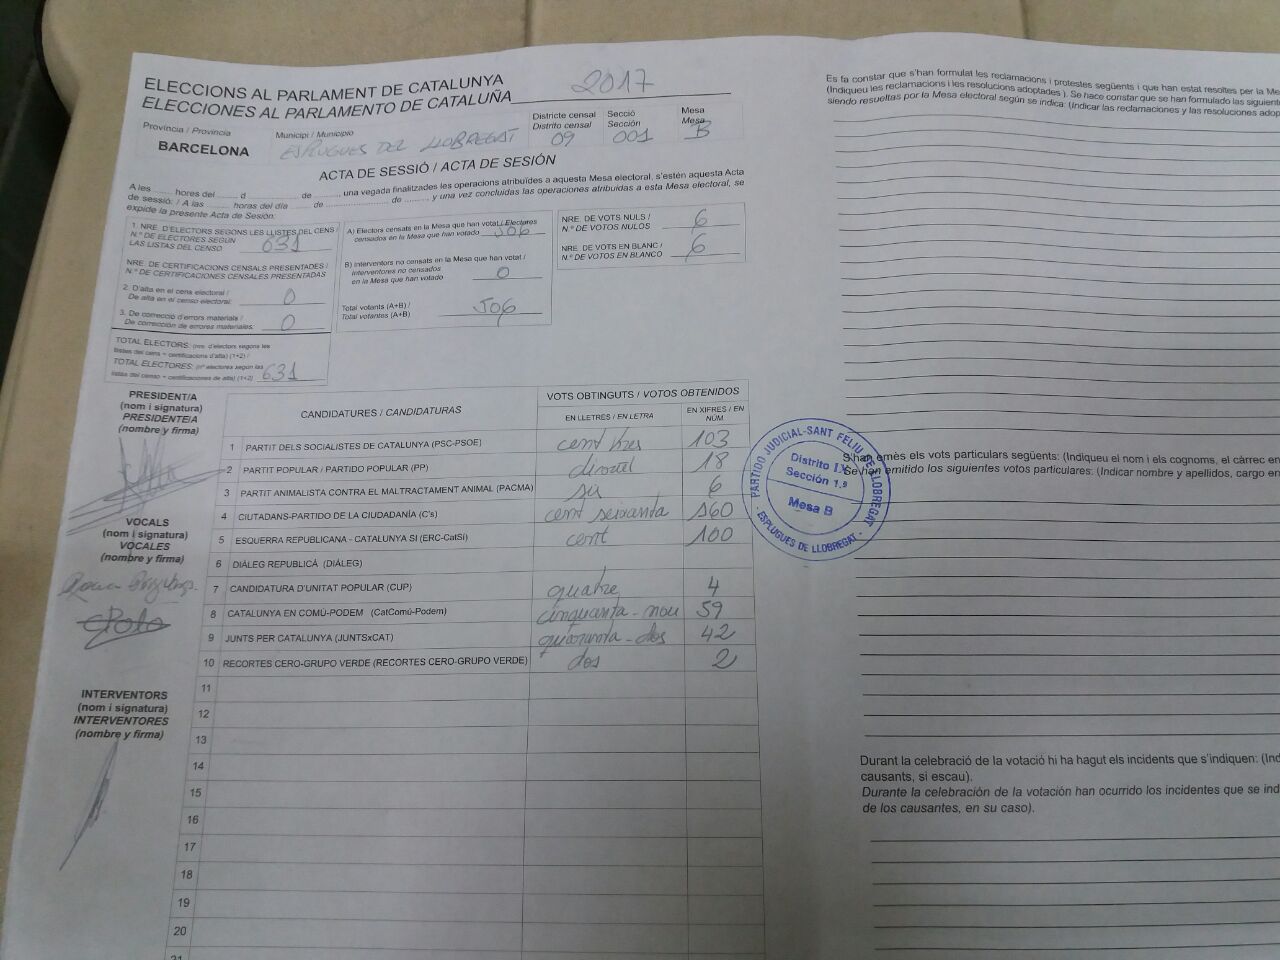 ELECCIONS AL PARLAMENT DE CATALUNYA
ELECCIONES AL PARLAMENTO DE CATALUÑA
2017
Província / Provincia
BARCELONA
Municipi / Municipio
ESPLUGUES DEL LLOBREGAT
Districte censal
Distrito censal
09
Secció
Sección
001
Mesa
Mesa
B
ACTA DE SESSIÓ / ACTA DE SESIÓN
A les ........ hores del ...... d ................ de .........., una vegada finalitzades les operacions atribuïdes a aquesta Mesa electoral, s'estén aquesta Acta
de sessió: / A las ........ horas del día ........ de ........................ de ........, y una vez concluidas las operaciones atribuidas a esta Mesa electoral, se
expide la presente Acta de Sesión:
1. NRE. D'ELECTORS SEGONS LES LLISTES DEL CENS /
N.º DE ELECTORES SEGÚN
LAS LISTAS DEL CENSO
631
NRE. DE CERTIFICACIONS CENSALS PRESENTADES /
N.º DE CERTIFICACIONES CENSALES PRESENTADAS
2. D'alta en el cens electoral /
De alta en el censo electoral:
0
3. De correcció d'errors materials /
De corrección de errores materiales:
0
TOTAL ELECTORS: (nre. d'electors segons les
llistes del cens + certificacions d'alta) (1+2) /
TOTAL ELECTORES: (nº electores según las
listas del censo + certificaciones de alta) (1+2)
631
A) Electors censats en la Mesa que han votat / Electores
censados en la Mesa que han votado
506
B) Interventors no censats en la Mesa que han votat /
Interventores no censados
en la Mesa que han votado
0
Total votants (A+B) /
Total votantes (A+B)
506
NRE. DE VOTS NULS /
N.º DE VOTOS NULOS
6
NRE. DE VOTS EN BLANC /
N.º DE VOTOS EN BLANCO
6
PRESIDENT/A
(nom i signatura)
PRESIDENTE/A
(nombre y firma)
VOCALS
(nom i signatura)
VOCALES
(nombre y firma)
INTERVENTORS
(nom i signatura)
INTERVENTORES
(nombre y firma)
CANDIDATURES / CANDIDATURAS
VOTS OBTINGUTS / VOTOS OBTENIDOS
EN LLETRES / EN LETRA
EN XIFRES / EN NÚM.
1 PARTIT DELS SOCIALISTES DE CATALUNYA (PSC-PSOE) cent tres 103
2 PARTIT POPULAR / PARTIDO POPULAR (PP) divuit 18
3 PARTIT ANIMALISTA CONTRA EL MALTRACTAMENT ANIMAL (PACMA) sis 6
4 CIUTADANS-PARTIDO DE LA CIUDADANÍA (C's) cent seixanta 160
5 ESQUERRA REPUBLICANA - CATALUNYA SI (ERC-CatSí) cent 100
6 DIÀLEG REPUBLICÀ (DIÀLEG)
7 CANDIDATURA D'UNITAT POPULAR (CUP) quatre 4
8 CATALUNYA EN COMÚ-PODEM (CatComú-Podem) cinquanta-nou 59
9 JUNTS PER CATALUNYA (JUNTSxCAT) quaranta-dos 42
10 RECORTES CERO-GRUPO VERDE (RECORTES CERO-GRUPO VERDE) dos 2
11
12
13
14
15
16
17
18
19
20
21
PARTIDO JUDICIAL-SANT FELIU DE LLOBREGAT
Distrito IX
Sección 1.ª
Mesa B
- ESPLUGUES DE LLOBREGAT -
Es fa constar que s'han formulat les reclamacions i protestes següents i que han estat resoltes per la Me
(Indiqueu les reclamacions i les resolucions adoptades ). Se hace constar que se han formulado las siguiente
siendo resueltas por la Mesa electoral según se indica: (Indicar las reclamaciones y las resoluciones adop
S'han emès els vots particulars següents: (Indiqueu el nom i els cognoms, el càrrec en
Se han emitido los siguientes votos particulares: (Indicar nombre y apellidos, cargo en
Durant la celebració de la votació hi ha hagut els incidents que s'indiquen: (Ind
causants, si escau).
Durante la celebración de la votación han ocurrido los incidentes que se ind
de los causantes, en su caso).